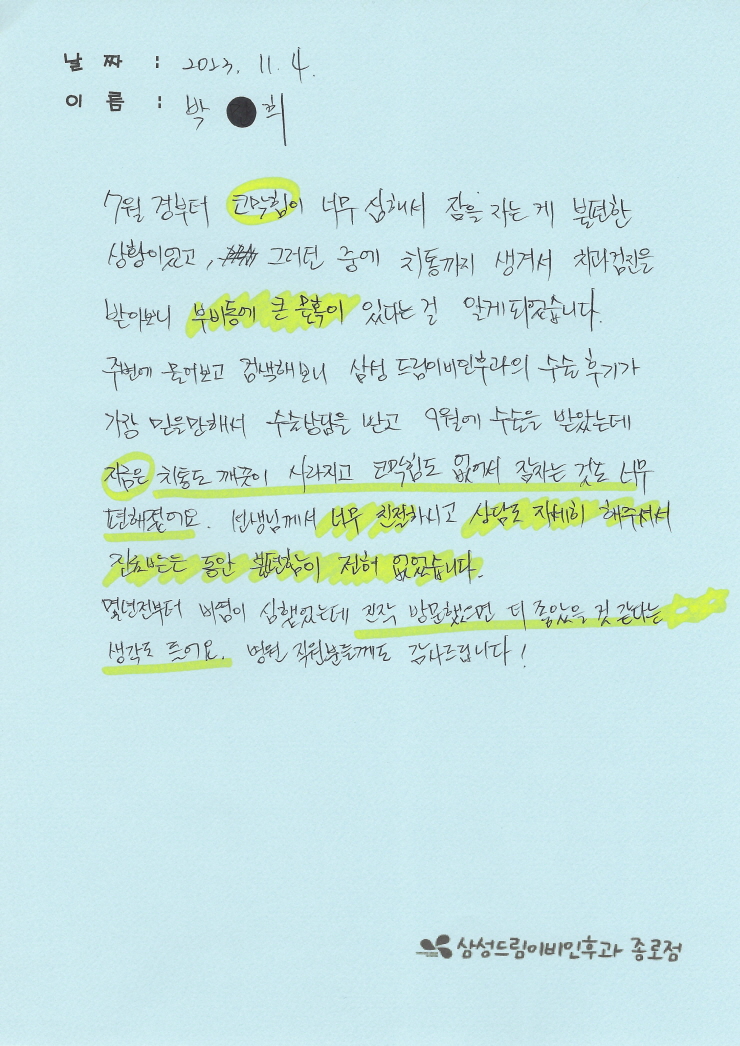 날 짜 : 2023. 11. 4.
이 름 : 박 ●희
7월 경부터 코막힘이 너무 심해서 잠을 자는 게 불편한
상황이었고, 그러던 중에 치통까지 생겨서 치과검진을
받아보니 부비동에 큰 물혹이 있다는 걸 알게 되었습니다.
주변에 물어보고 검색해보니 삼성 드림이비인후과의 수술 후기가
가장 믿을만해서 수술상담을 받고 9월에 수술을 받았는데
지금은 치통도 깨끗이 사라지고 코막힘도 없어서 잠자는 것도 너무
편해졌어요. 선생님께서 너무 친절하시고 상담도 자세히 해주셔서
진료받는 동안 불편함이 전혀 없었습니다.
몇년전부터 비염이 심했었는데 진작 방문했으면 더 좋았을 것 같다는
생각도 들어요. 병원 직원분들께도 감사드립니다!
삼성드림이비인후과 종로점